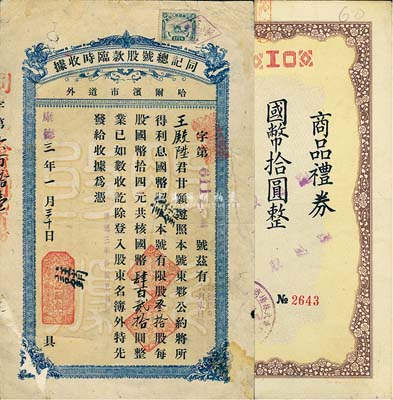 同記總號股款臨時收據
哈爾濱市道外
字第 號茲有
王殿陞君甘願遵照本號東夥公約將所
得利息國幣 本號有限股叁拾股每
股國幣拾四元共核國幣肆百貳拾圓整
業已如數收訖除登入股東名簿外特先
發給收據為憑
康德三年一月三十日 具
商品禮券
國幣拾圓整
№ 2643
60